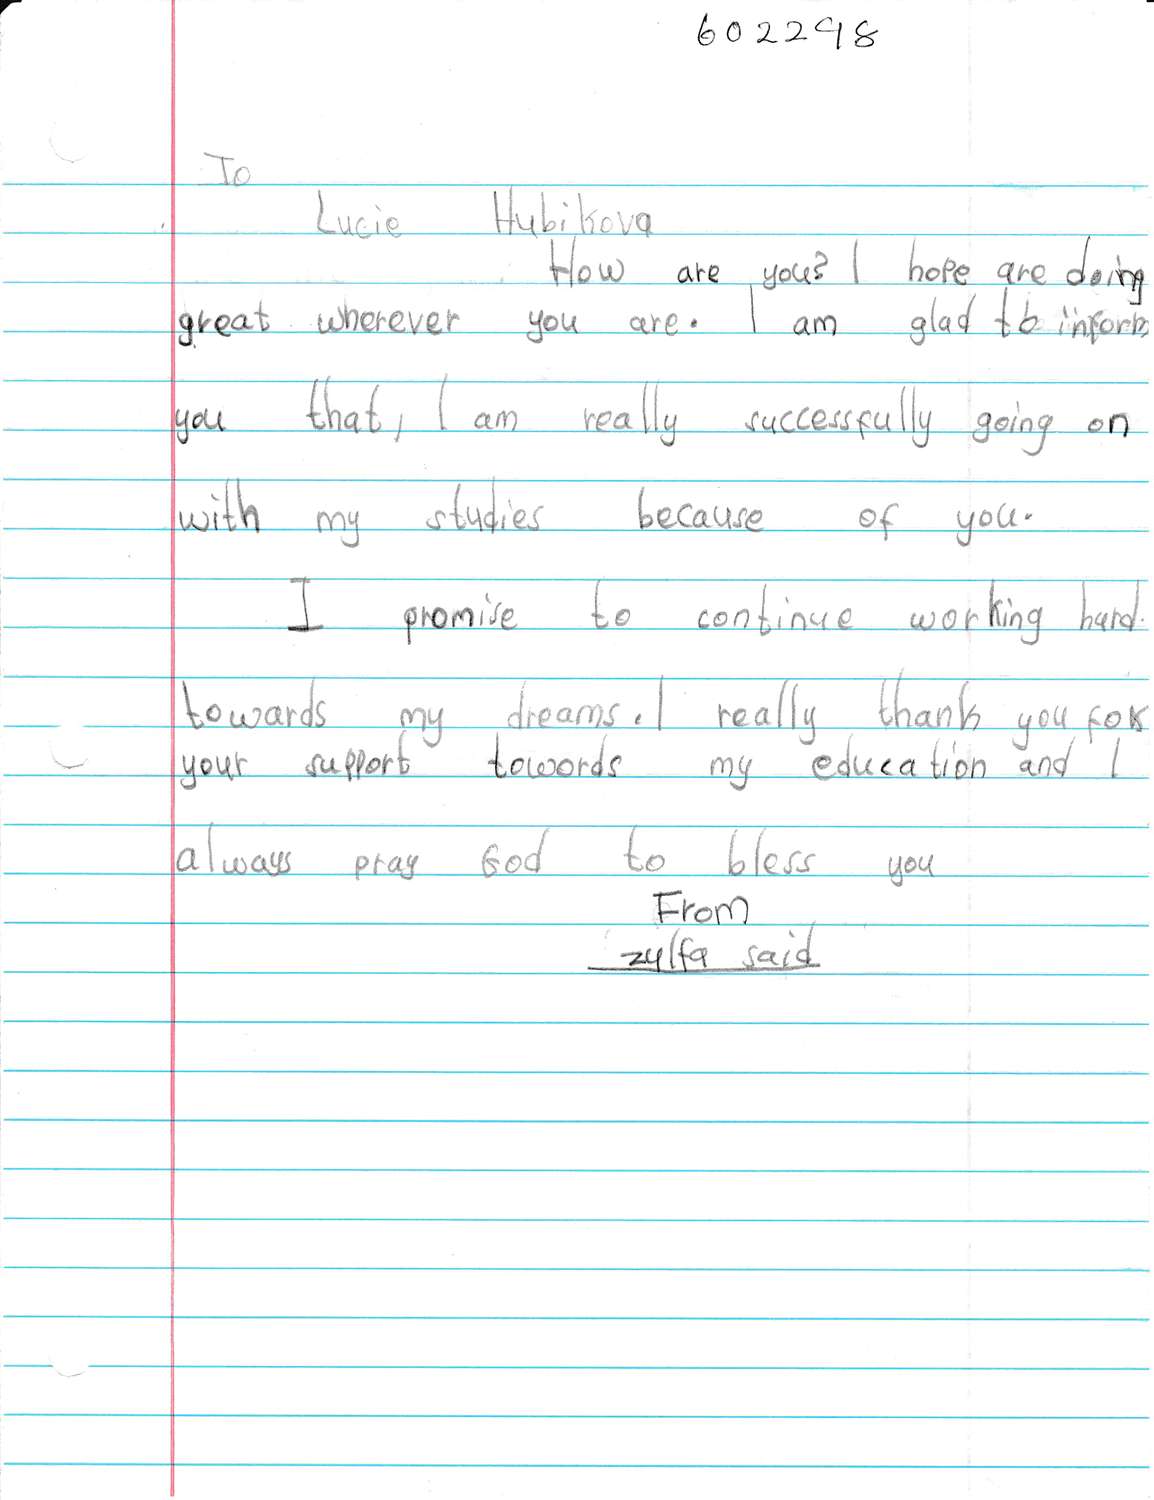 602298
To
Lucie Hubikova
How are you? I hope are doing
great wherever you are. I am glad to inform
you that, I am really successfully going on
with my studies because of you.
I promise to continue working hard.
towards my dreams. I really thank you for
your support towords my education and I
always pray God to bless you
From
zylfa said